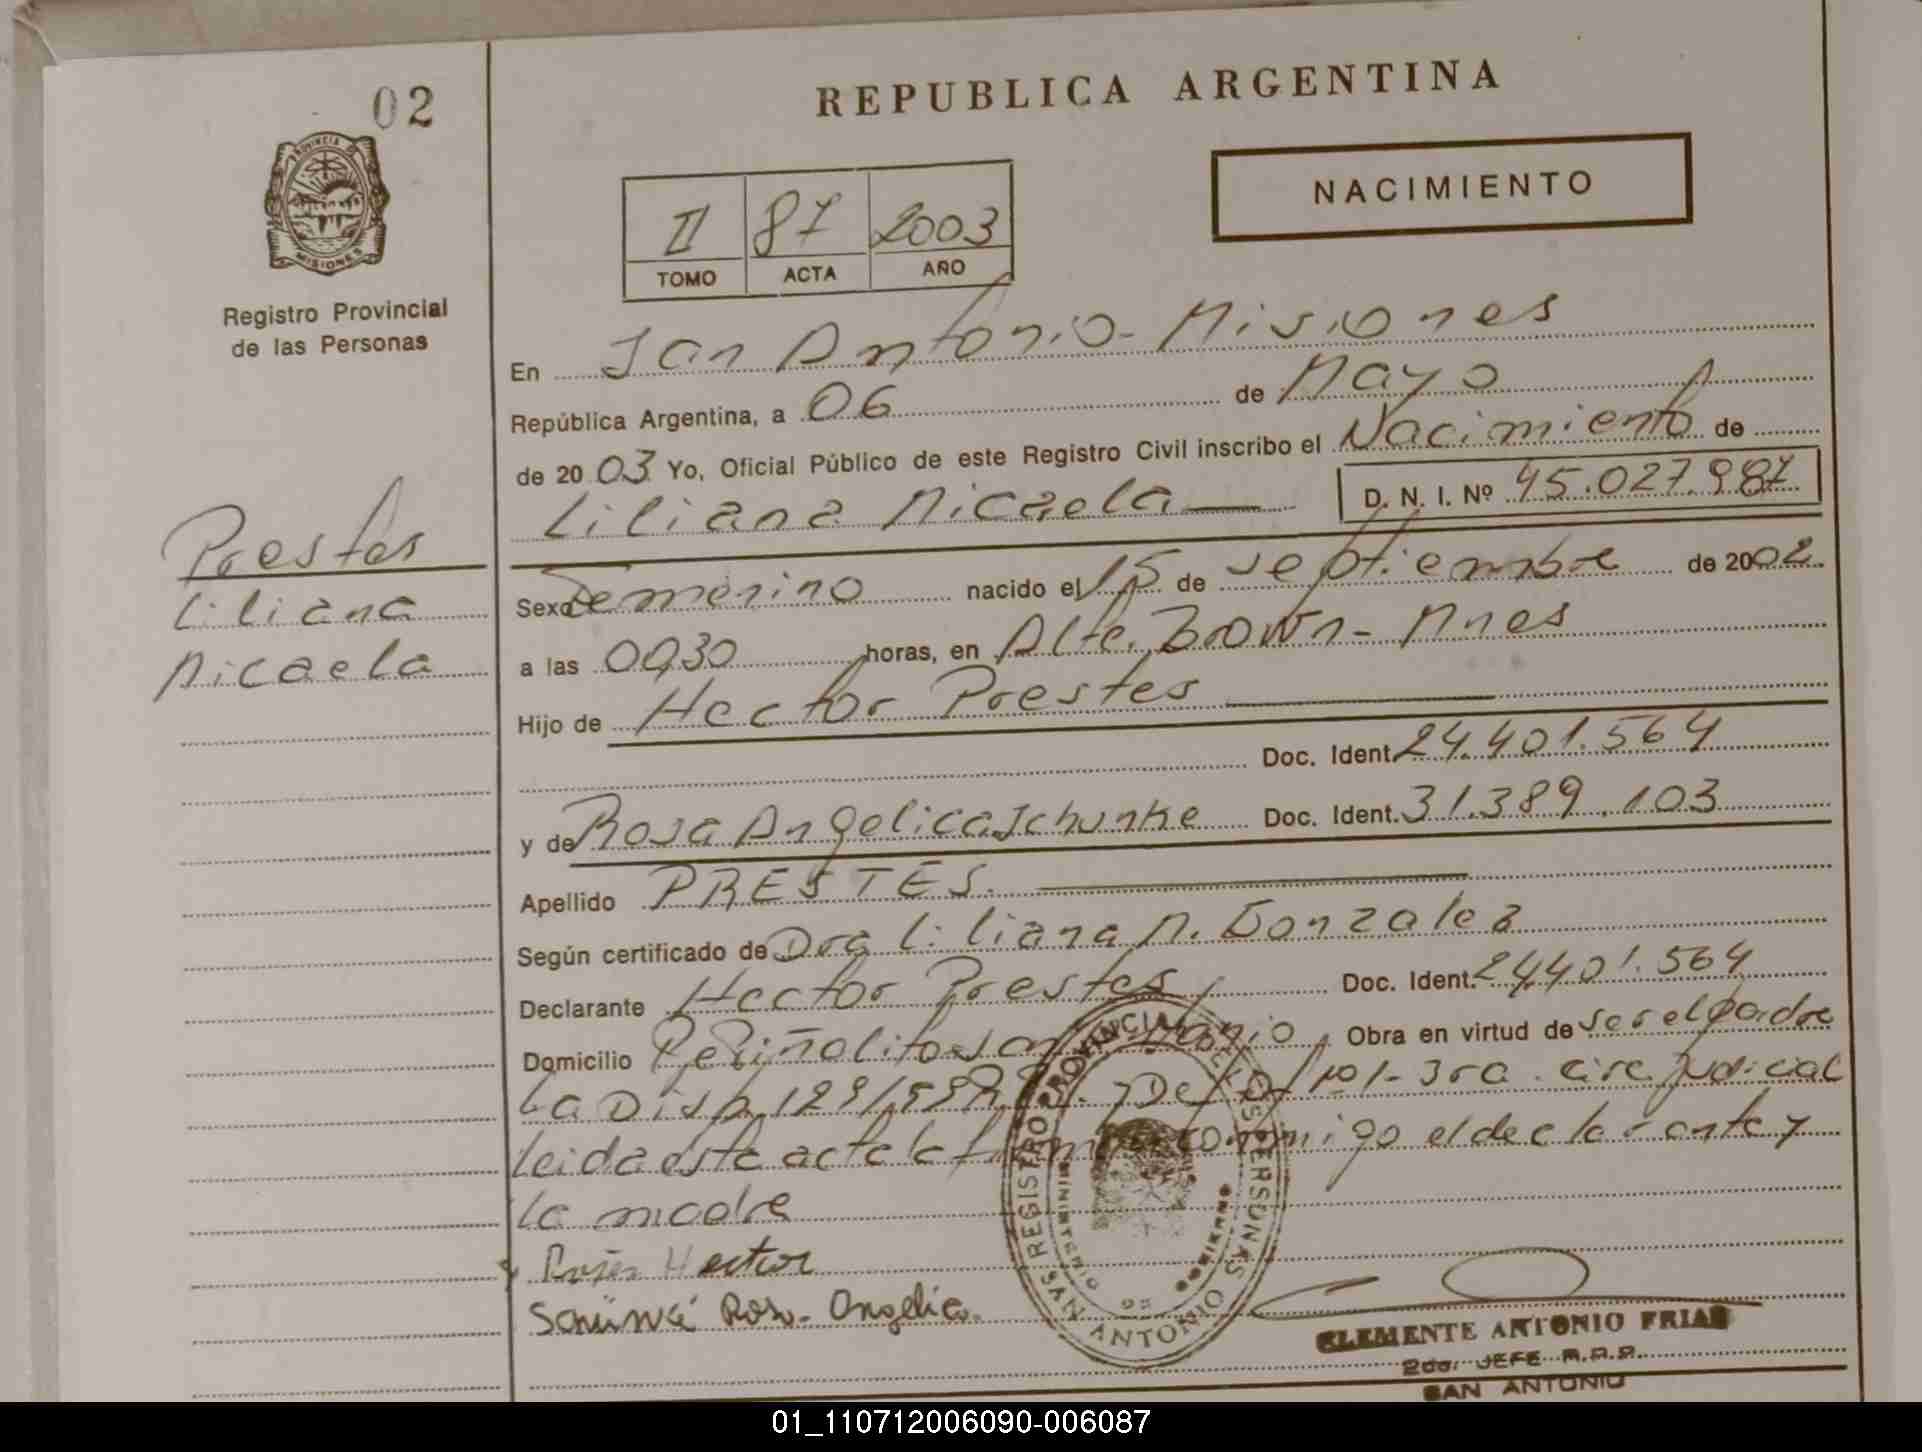 02
REPUBLICA ARGENTINA
PROVINCIA DE
MISIONES
Registro Provincial
de las Personas
NACIMIENTO
II 87 2003
TOMO ACTA AÑO
En San Antonio - Misiones
República Argentina, a 06 de Mayo
de 2003 Yo, Oficial Público de este Registro Civil inscribo el Nacimiento de
Liliana Micaela D. N. I. Nº 45.027.987
Prestes
Liliana
Micaela
Sexo Femenino nacido el 15 de Septiembre de 2002.
a las 00,30 horas, en Alte. Brown - Mnes
Hijo de Hector Prestes
Doc. Ident. 24.401.564
y de Rosa Angelica Schunke Doc. Ident. 31.389.103
Apellido PRESTES.
Según certificado de Dra Liliana M. Gonzalez
Declarante Hector Prestes Doc. Ident. 24.401.564
Domicilio Piñalito San Antonio Obra en virtud de ser el padre
La Disp. 129/ 3ra. circ judicial
leida este acta la firma conmigo el declarante y
la madre
Hector
Rosa Angelica.
REGISTRO PROVINCIAL DE LAS PERSONAS
SAN ANTONIO
CLEMENTE ANTONIO FRIAS
2do. JEFE R.P.P.
SAN ANTONIO
01_110712006090-006087